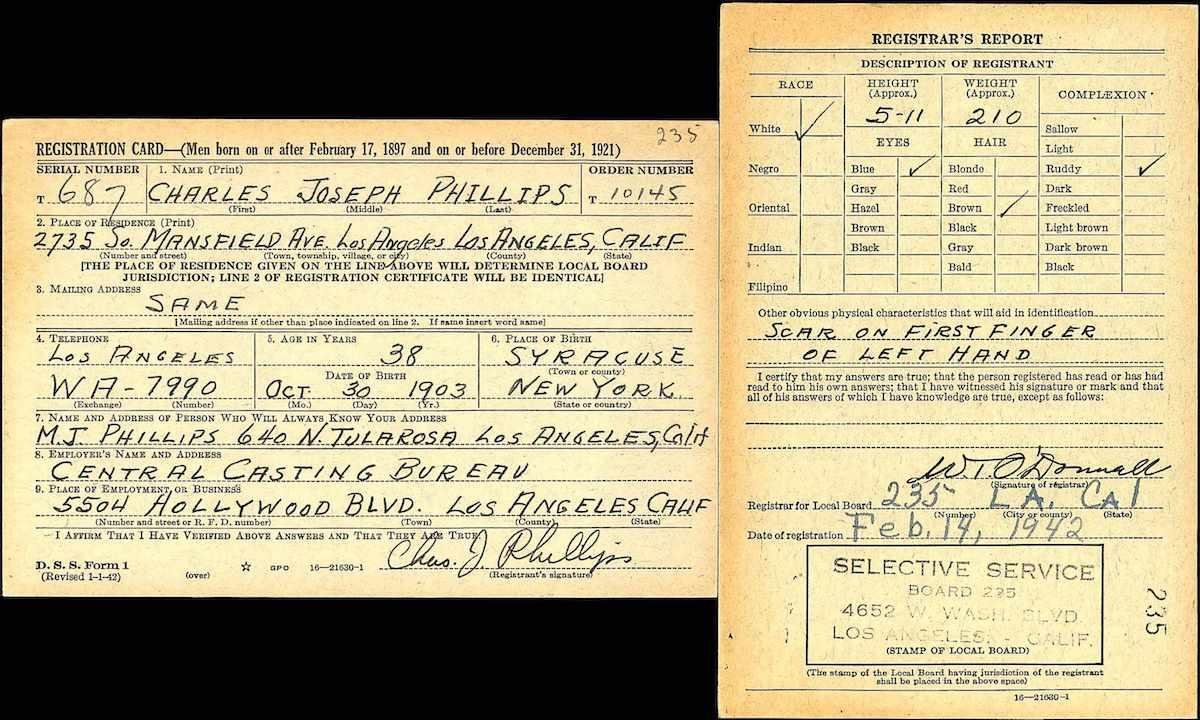 235
REGISTRATION CARD—(Men born on or after February 17, 1897 and on or before December 31, 1921)
SERIAL NUMBER 1. NAME (Print) ORDER NUMBER
T 687 CHARLES JOSEPH PHILLIPS T 10145
(First) (Middle) (Last)
2. PLACE OF RESIDENCE (Print)
2735 So. MANSFIELD AVE. Los Angeles Los ANGELES, CALIF
(Number and street) (Town, township, village, or city) (County) (State)
[THE PLACE OF RESIDENCE GIVEN ON THE LINE ABOVE WILL DETERMINE LOCAL BOARD
JURISDICTION; LINE 2 OF REGISTRATION CERTIFICATE WILL BE IDENTICAL]
3. MAILING ADDRESS
SAME
[Mailing address if other than place indicated on line 2. If same insert word same]
4. TELEPHONE 5. AGE IN YEARS 6. PLACE OF BIRTH
LOS ANGELES 38 SYRACUSE
DATE OF BIRTH (Town or county)
WA-7990 OCT. 30 1903 NEW YORK.
(Exchange) (Number) (Mo.) (Day) (Yr.) (State or country)
7. NAME AND ADDRESS OF PERSON WHO WILL ALWAYS KNOW YOUR ADDRESS
M.J. PHILLIPS 640 N. TULAROSA LOS ANGELES, Calif
8. EMPLOYER'S NAME AND ADDRESS
CENTRAL CASTING BUREAU
9. PLACE OF EMPLOYMENT OR BUSINESS
5504 HOLLYWOOD BLVD. LOS ANGELES CALIF
(Number and street or R. F. D. number) (Town) (County) (State)
I AFFIRM THAT I HAVE VERIFIED ABOVE ANSWERS AND THAT THEY ARE TRUE.
Chas. J. Phillips
D. S. S. Form 1
(Revised 1-1-42) (over) ☆ GPO 16—21630-1 (Registrant's signature)
REGISTRAR'S REPORT
DESCRIPTION OF REGISTRANT
RACE HEIGHT (Approx.) WEIGHT (Approx.) COMPLEXION
5-11 210
White ✓ Sallow
EYES HAIR Light
Negro Blue ✓ Blonde Ruddy ✓
Gray Red Dark
Oriental Hazel Brown ✓ Freckled
Brown Black Light brown
Indian Black Gray Dark brown
Bald Black
Filipino
Other obvious physical characteristics that will aid in identification
SCAR ON FIRST FINGER
OF LEFT HAND
I certify that my answers are true; that the person registered has read or has had
read to him his own answers; that I have witnessed his signature or mark and that
all of his answers of which I have knowledge are true, except as follows:
W.T. O'Donnall
(Signature of registrar)
Registrar for Local Board 235 LA, Cal
(Number) (City or county) (State)
Date of registration Feb. 14, 1942
SELECTIVE SERVICE
BOARD 235
4652 W. WASH. BLVD
LOS ANGELES, - CALIF.
(STAMP OF LOCAL BOARD)
235
(The stamp of the Local Board having jurisdiction of the registrant
shall be placed in the above space)
16—21630-1